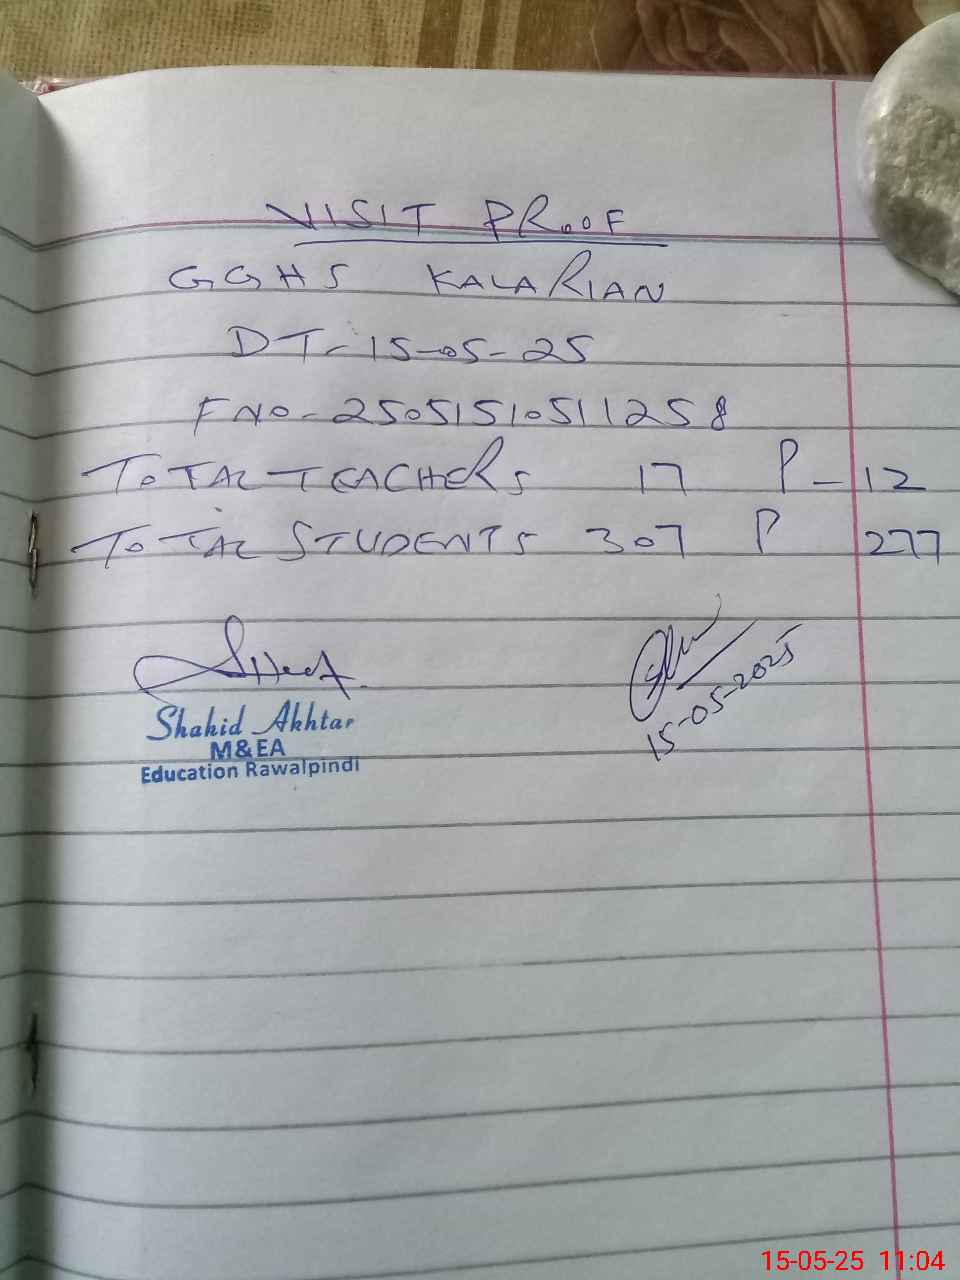 VISIT PROOF
GGHS KALARIAN
DT-15-05-25
FNO-25051510511258
TOTAL TEACHERS 17 P-12
TOTAL STUDENTS 307 P 277
15-05-2025
Shahid Akhtar
M&EA
Education Rawalpindi
15-05-25 11:04